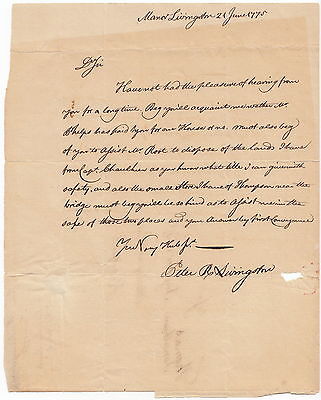 Manor Livingston 21 June 1775
D Sir
Have not had the pleasure of hearing from
you for a long time. Beg you'll acquaint me wether Mr.
Phelps has paid you for our Horses or no. must also beg
of you to Assist Mr. Root to dispose of the Lands I have
from Capt. as you know what title I can give with
safety, and also the small Store I have of Thompson near the
bridge must beg you'll be so kind as to Assist me in the
sale of those two places and your Answer by first Conveyance
Your Very Hube. Sr.
Peter R. Livingston